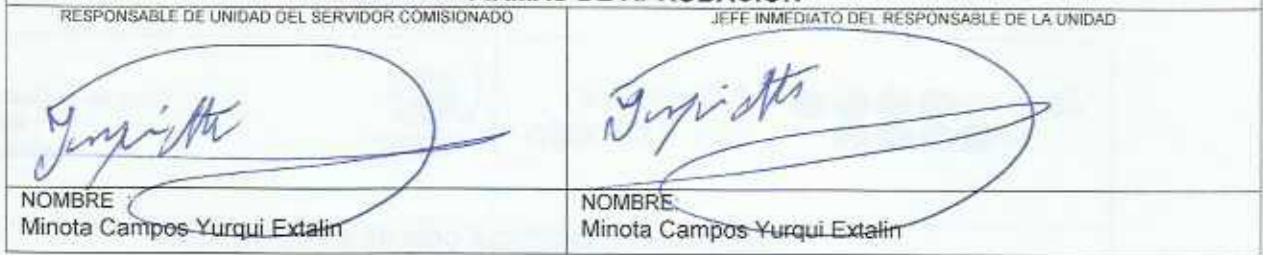 FIRMAS DE APROBACIÓN
RESPONSABLE DE UNIDAD DEL SERVIDOR COMISIONADO
JEFE INMEDIATO DEL RESPONSABLE DE LA UNIDAD
NOMBRE :
Minota Campos Yurqui Extalin
NOMBRE:
Minota Campos Yurqui Extalin